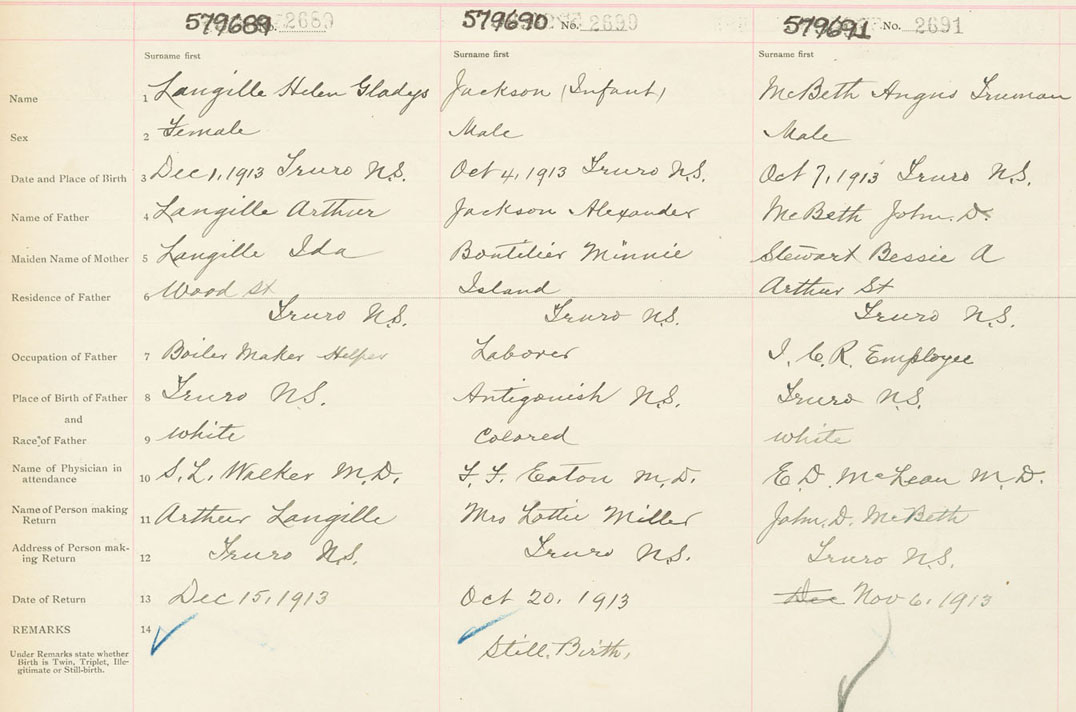 579689 No. 2689 579690 No. 2690 579691 No. 2691
Surname first Surname first Surname first
Name 1 Langille Helen Gladys Jackson (Infant) McBeth Angus Truman
Sex 2 Female Male Male
Date and Place of Birth 3 Dec 1, 1913 Truro N.S. Oct 4, 1913 Truro N.S. Oct 7, 1913 Truro N.S.
Name of Father 4 Langille Arthur Jackson Alexander McBeth John. D.
Maiden Name of Mother 5 Langille Ida Boutilier Minnie Stewart Bessie A
Residence of Father 6 Wood St Island Arthur St
Truro N.S. Truro N.S. Truro N.S.
Occupation of Father 7 Boiler Maker Helper Laborer I. C. R. Employee
Place of Birth of Father 8 Truro N.S. Antigonish N.S. Truro N.S.
and
Race of Father 9 white Colored white
Name of Physician in
attendance 10 S. L. Walker M.D. F. F. Eaton M.D. E. D. McLean M.D.
Name of Person making
Return 11 Arthur Langille Mrs Lottie Miller John. D. McBeth
Address of Person mak-
ing Return 12 Truro N.S. Truro N.S. Truro N.S.
Date of Return 13 Dec 15, 1913 Oct 20, 1913 Dec Nov 6, 1913
REMARKS 14
Under Remarks state whether
Birth is Twin, Triplet, Ille-
gitimate or Still-birth.
Still. Birth.